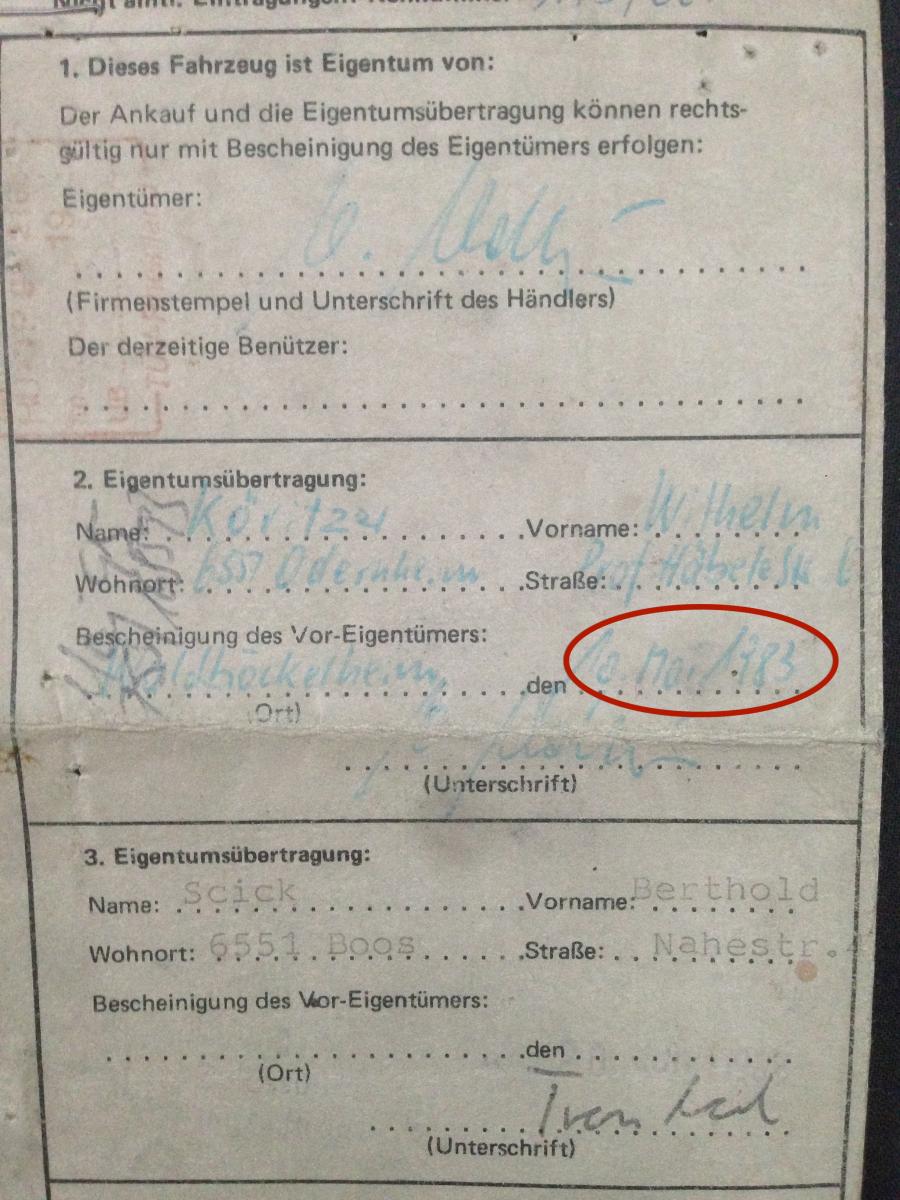 1. Dieses Fahrzeug ist Eigentum von:
Der Ankauf und die Eigentumsübertragung können rechts-
gültig nur mit Bescheinigung des Eigentümers erfolgen:
Eigentümer:
(Firmenstempel und Unterschrift des Händlers)
Der derzeitige Benützer:
2. Eigentumsübertragung:
Name: Vorname: Wilhelm
Wohnort: 6551 Odernheim Straße:
Bescheinigung des Vor-Eigentümers:
Waldböckelheim, den 10. Mai 1983
(Ort)
(Unterschrift)
3. Eigentumsübertragung:
Name: Scick Vorname: Berthold
Wohnort: 6551 Boos Straße: Nahestr.
Bescheinigung des Vor-Eigentümers:
den
(Ort)
(Unterschrift)